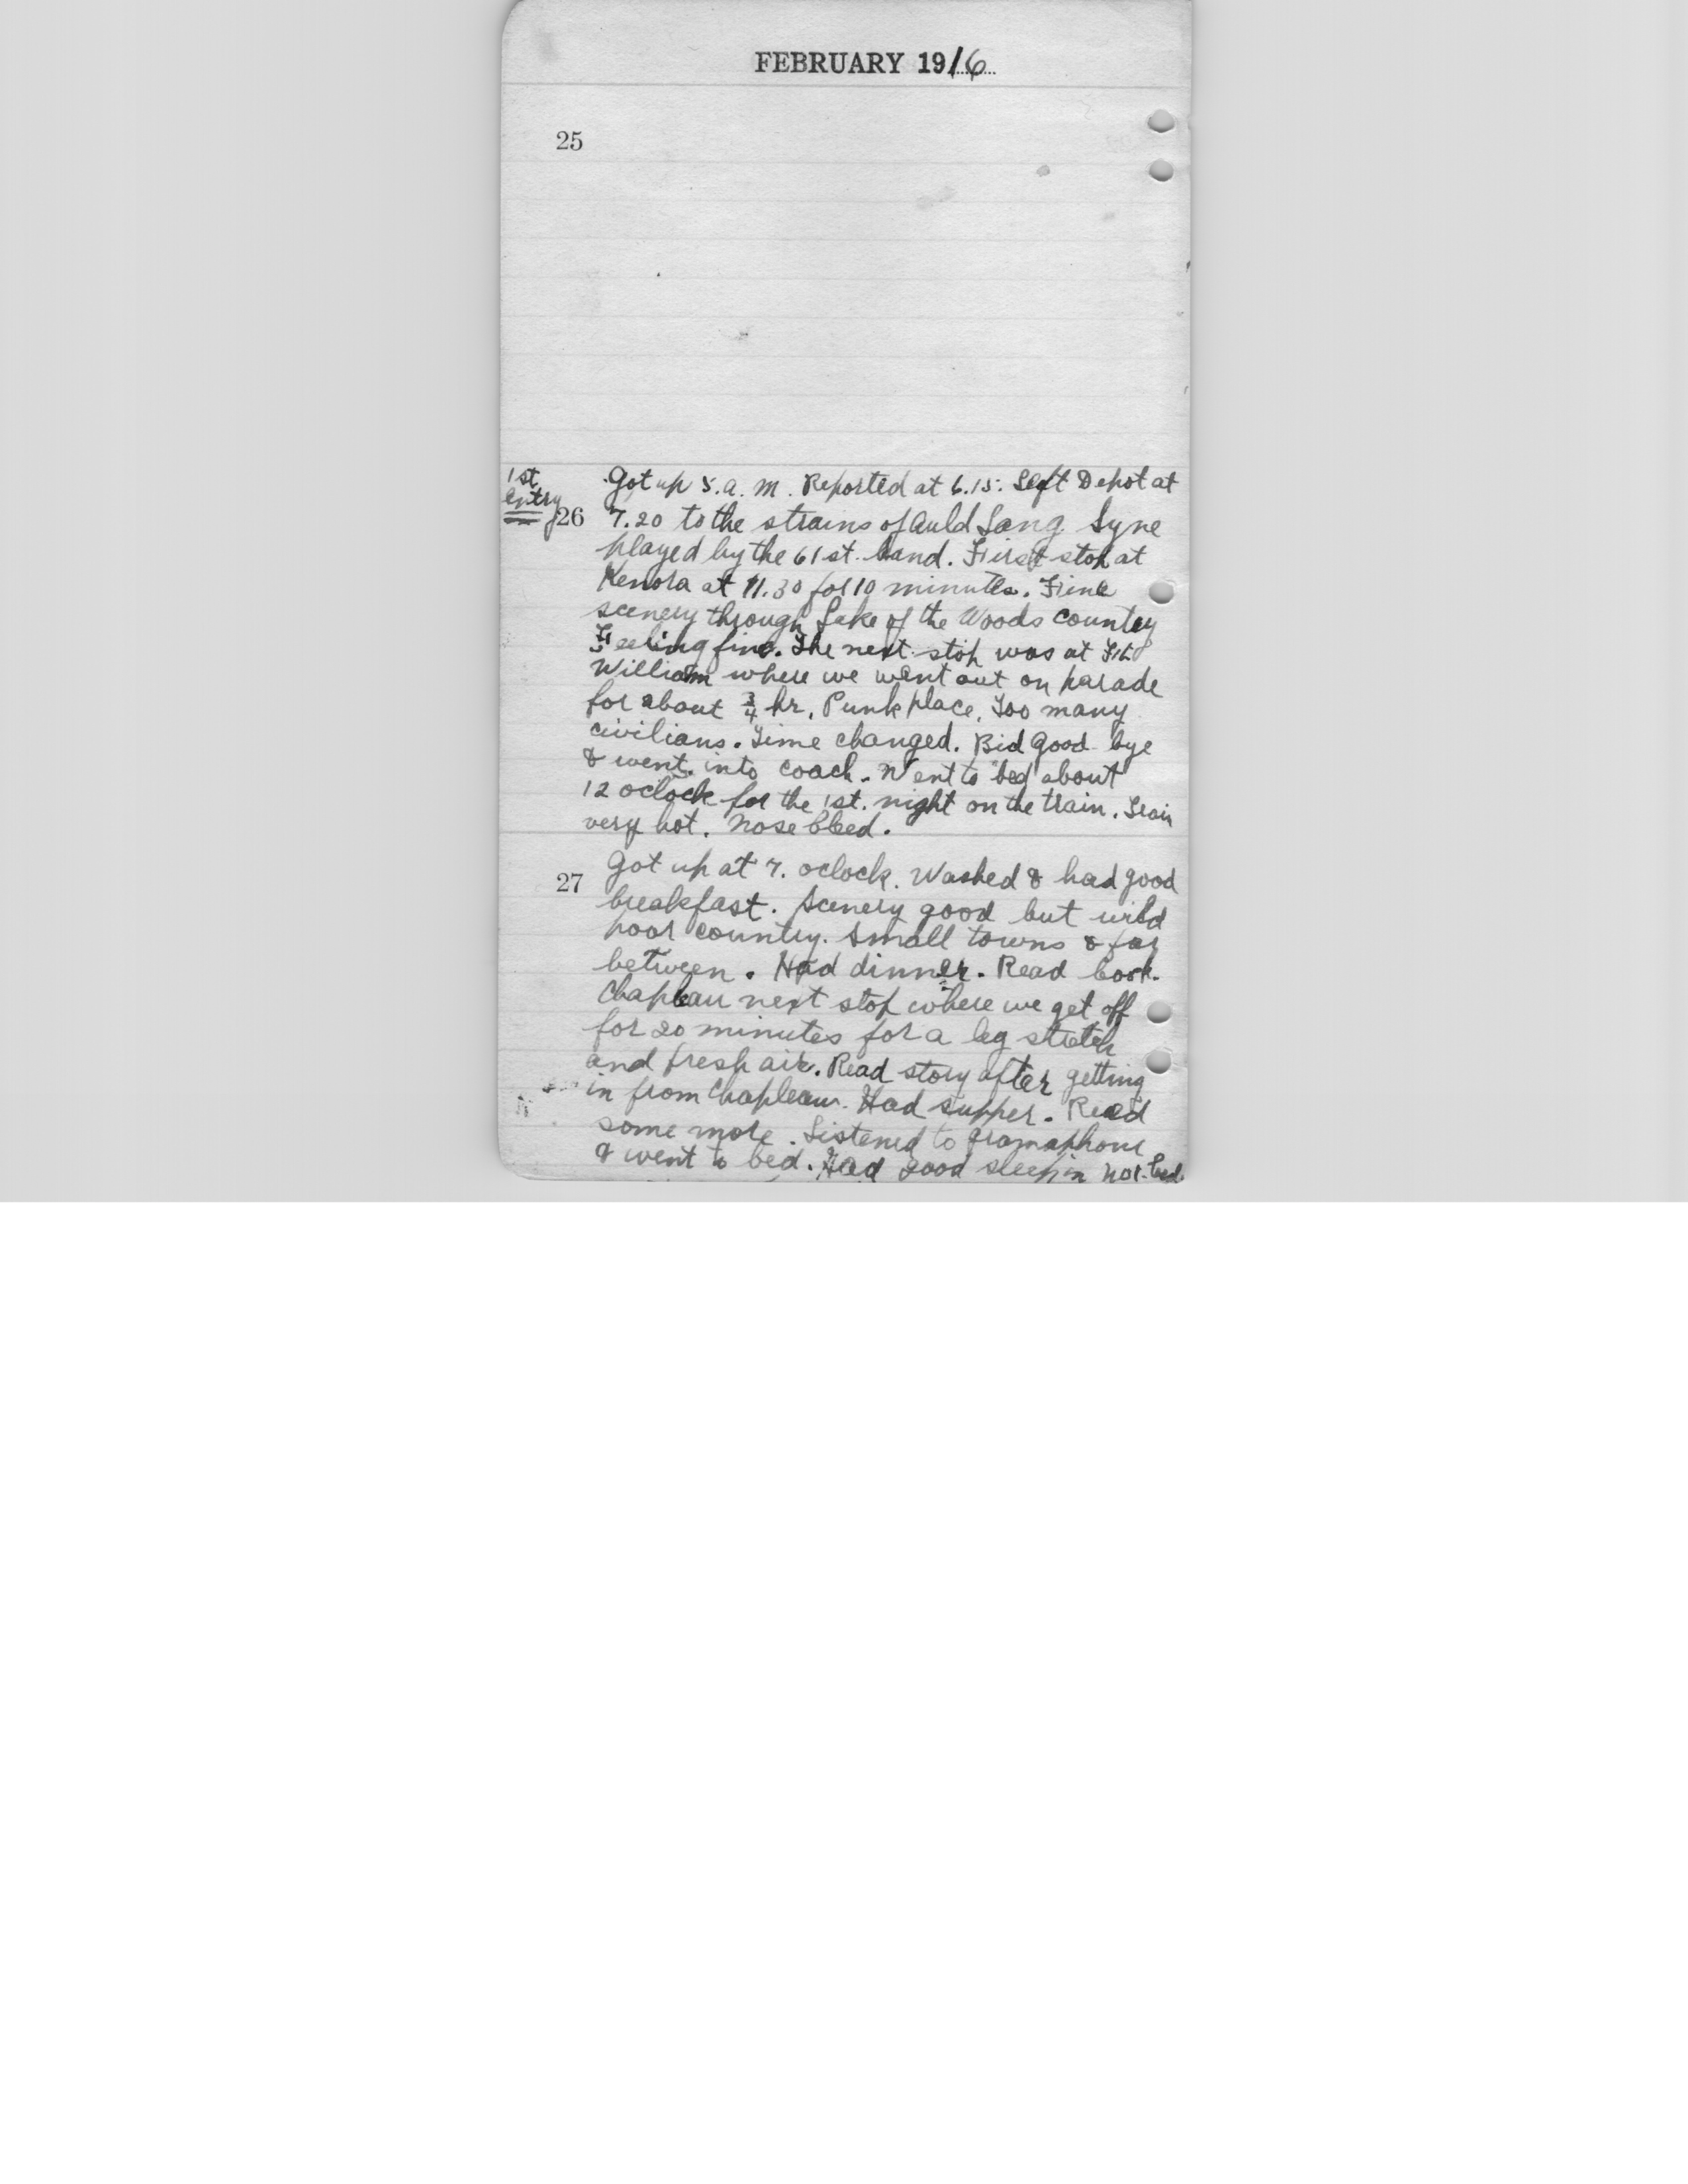 FEBRUARY 1916
25
1st
entry
26
Got up 5. a. m. Reported at 6.15. Left Depot at
7.20 to the strains of Auld Lang Syne
played by the 61st. band. First stop at
Kenora at 11.30 for 10 minutes. Fine
scenery through Lake of the Woods country
Feeling fine. The next stop was at Ft.
William where we went out on parade
for about 3/4 hr. Punk place. Too many
civilians. Time changed. Bid good bye
& went into coach. Went to bed about
12 oclock for the 1st. night on the train. Train
very hot. Nose bleed.
27
Got up at 7. oclock. Washed & had good
breakfast. Scenery good but wild
poor country. Small towns & far
between. Had dinner. Read book.
Chapleau next stop where we get off
for 20 minutes for a leg stretch
and fresh air. Read story after getting
in from Chapleau. Had supper. Read
some more. Listened to gramaphone
& went to bed. Had good sleep in hot bed